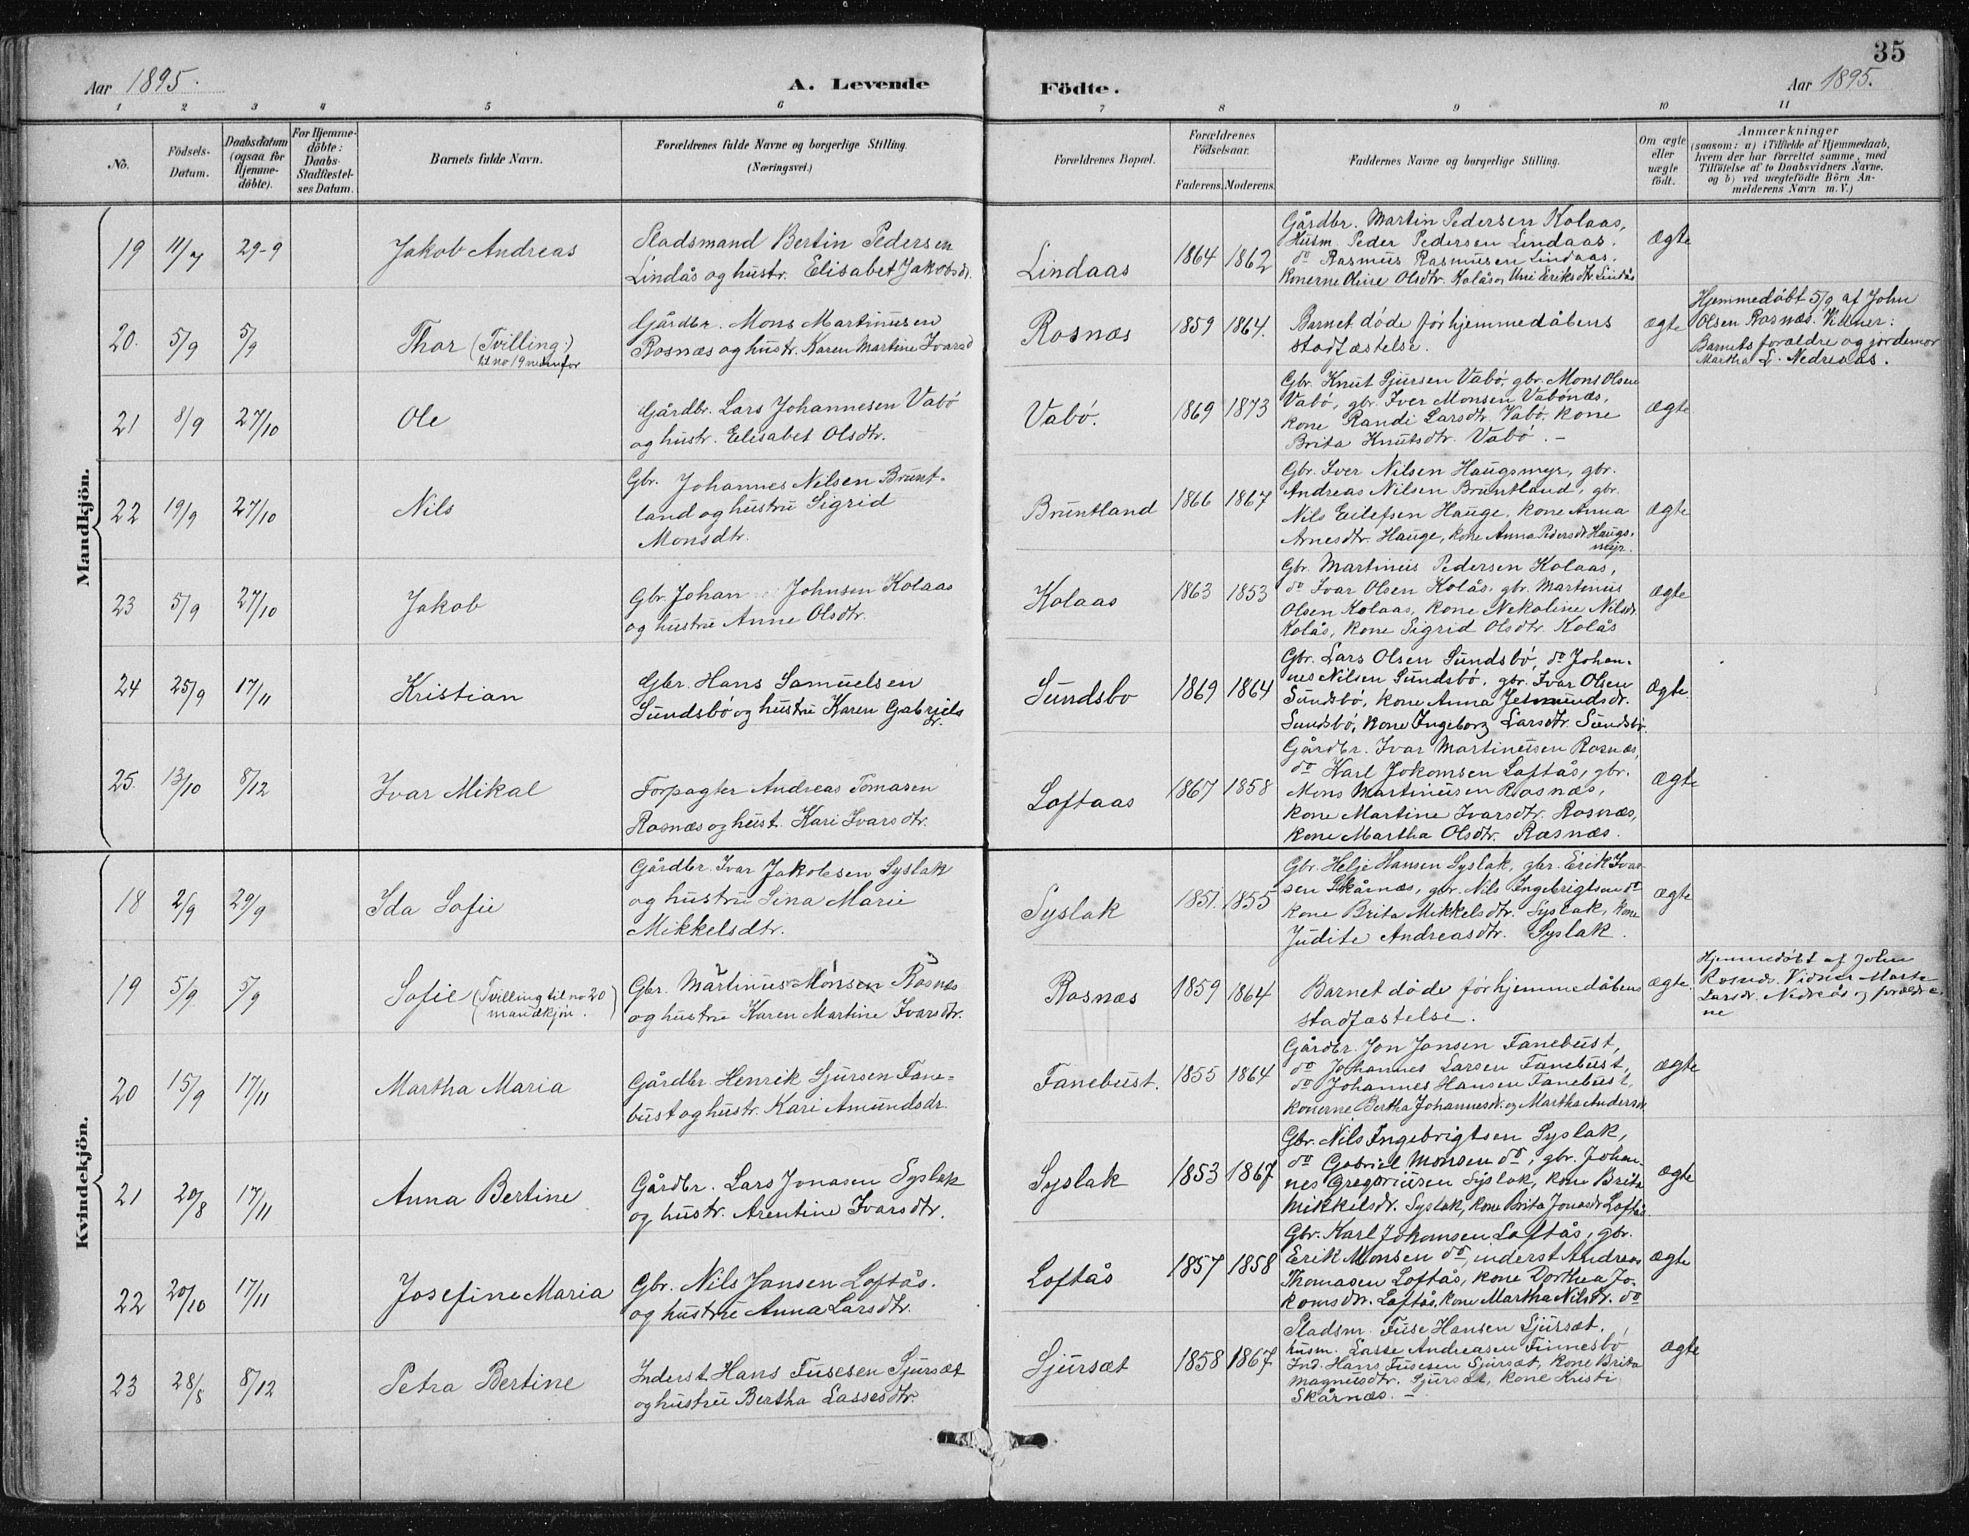 35
Aar 1895.
A. Levende
Födte.
Aar 1895.
1 2 3 4 5 6 7 8 9 10 11
No.
Födsels-
Datum.
Daabsdatum
(ogsaa for
Hjemme-
döbte).
For Hjemme-
döbte:
Daabs-
Stadfæstel-
ses Datum.
Barnets fulde Navn.
Forældrenes fulde Navne og borgerlige Stilling.
(Næringsvei.)
Forældrenes Bopæl.
Forældrenes
Födselsaar.
Faderens. Moderens.
Faddernes Navne og borgerlige Stilling.
Om ægte
eller
uægte
födt.
Anmærkninger
(saasom: a) i Tilfælde af Hjemmedaab,
hvem der har forrettet samme, med
Tilföielse af to Daabsvidners Navne.
og b) ved uægtefödte Börn An-
melderens Navn m. V.)
Mandkjön.
19 29-9
Jakob Andreas
Stadsmand Bertin Pedersen
Lindås og hustr. Elisabet Jakobsdr.
Lindaas
1864 1862
Gårdbr. Martin Pedersen Kolaas,
Husm. Peder Pedersen Lindaas.
do Rasmus Rasmusen Lindaas.
Konerne Oline Olsdtr. Kolås og Uni Eriksdtr. Lindås
ægte
20. 5/9 5/9
Thor (Tvilling:)
til no 19 nedenfor
Gårdbr. Mons Martinusen
Rosnæs og hustr. Karen Martine Ivarsd
Rosnæs
1859 1864.
Barnet døde før hjemmedåbens
stadfæstelse.
ægte
Hjemmedøbt 5/9 af John
Olsen Rosnæs. Vidner:
Barnets forældre og jordemor
Martha L. Nedreaas.
21 8/9 27/10
Ole
Gårdbr. Lars Johannesen Vabø
og hustr. Elisabet Olsdtr.
Vabø.
1869 1873
Gbr. Knut Sjursen Vabø, gbr. Mons Olsen
Vabø, gbr. Iver Monsen Vabønæs,
kone Randi Larsdtr. Vabø, kone
Brita Knutsdtr. Vabø. –
ægte
22 19/9 27/10
Nils
Gbr. Johannes Nilsen Brunt-
land og hustru Sigrid
Monsdtr.
Bruntland
1866 1867
Gbr. Iver Nilsen Haugsmyr, gbr.
Andreas Nilsen Bruntland, gbr.
Nils Eilefsen Hauge, kone Anna
Arnesdtr. Hauge, kone Anna Pedersdr. Haugs-
myr.
ægte
23 5/9 27/10
Jakob
Gbr. Johan Johnsen Kolaas
og hustru Anne Olsdtr.
Kolaas
1863 1853
Gbr. Martinus Pedersen Kolaas,
do Ivar Olsen Kolås, gbr. Martinus
Olsen Kolaas, kone Nekoline Nilsdr.
Kolås, kone Sigrid Olsdtr. Kolås
ægte
24 25/9 17/11
Kristian
Gbr. Hans Samuelsen
Sundsbø og hustru Karen Gabriels
dr.
Sundsbø
1869 1864
Gbr. Lars Olsen Sundsbø, do Johan-
nes Nilsen Sundsbø, gbr. Ivar Olsen
Sundsbø, kone Anna Jetmundsdr.
Sundsbø, kone Ingeborg Larsdtr. Sundsbø.
ægte
25. 13/10 8/12
Ivar Mikal
Forpagter Andreas Tomasen
Rosnæs og hust. Kari Ivarsdtr.
Loftaas
1867 1858
Gårdbr. Ivar Martinusen Rosnæs,
do Karl Jokomsen Loftås, gbr.
Mons Martinusen Rosnæs,
kone Martine Ivarsdtr. Rosnæs,
kone Martha Olsdtr. Rosnæs.
ægte
Kvindekjön.
18 2/9 29/9
Ida Sofie
Gårdbr. Ivar Jakobsen Syslak
og hustru Sina Marie
Mikkelsdtr.
Syslak
1851. 1855
Gbr. Helje Hansen Syslak, gbr. Erik Ivar-
sen Skårnæs, gbr. Nils Ingebrigtsen do
kone Brita Mikkelsdtr. Syslak, kone
Judite Andreasdtr. Syslak.
ægte
19 5/9 5/9
Sofie (Tvilling til no 20
mandkjøn.)
Gbr. Martinus Monsen Rosnæs
og hustru Karen Martine Ivarsdtr.
Rosnæs
1859 1864
Barnet døde før hjemmedåbens
stadfæstelse.
ægte.
Hjemmedøbt af John
Rosnæs. Vidner Marta
Larsdr. Nedreås og forældre-
ne
20 15/9 17/11
Martha Maria
Gårdbr. Henrik Sjursen Fane-
bust og hustr. Kari Amundsdr.
Fanebust.
1855 1864
Gårdbr. Jon Jonsen Fanebust,
do Johannes Larsen Fanebust,
do Johannes Hansen Fanebust,
konerne Bertha Johannesdr. og Martha Andersdr.
ægte
21 20/8 17/11
Anna Bertine
Gårdbr. Lars Jonasen Syslak
og hustr. Arentine Ivarsdtr.
Syslak
1853 1867
Gbr. Nils Ingebrigtsen Syslak,
do Gabriel Monsen do, gbr. Johan-
nes Gregoriusen Syslak, kone Brita
Mikkelsdr. Syslak, kone Brita Jonasdr. Loftås.
ægte
22 20/10 17/11
Josefine Maria
Gbr. Nils Jansen Loftås.
og hustru Anna Larsdtr.
Loftås
1857 1858
Gbr. Karl Jokomsen Loftås, gbr.
Erik Monsen do, inderst Andreas
Thomasen Loftås, kone Dorthea Jo-
komsdr. Loftås, kone Martha Nilsdr. do
ægte
23 28/8 8/12
Petra Bertine
Inderst Hans Fusesen Sjursæt
og hustru Bertha Lassesdtr.
Sjursæt
1858 1867
Stadsm. Fuse Hansen Sjursæt,
husm. Lasse Andreasen Finnesbø
Ind. Hans Fusesen Sjursæt, kone Brita
Magnusdtr. Sjursæt, kone Kristi
Skårnæs. –
ægte